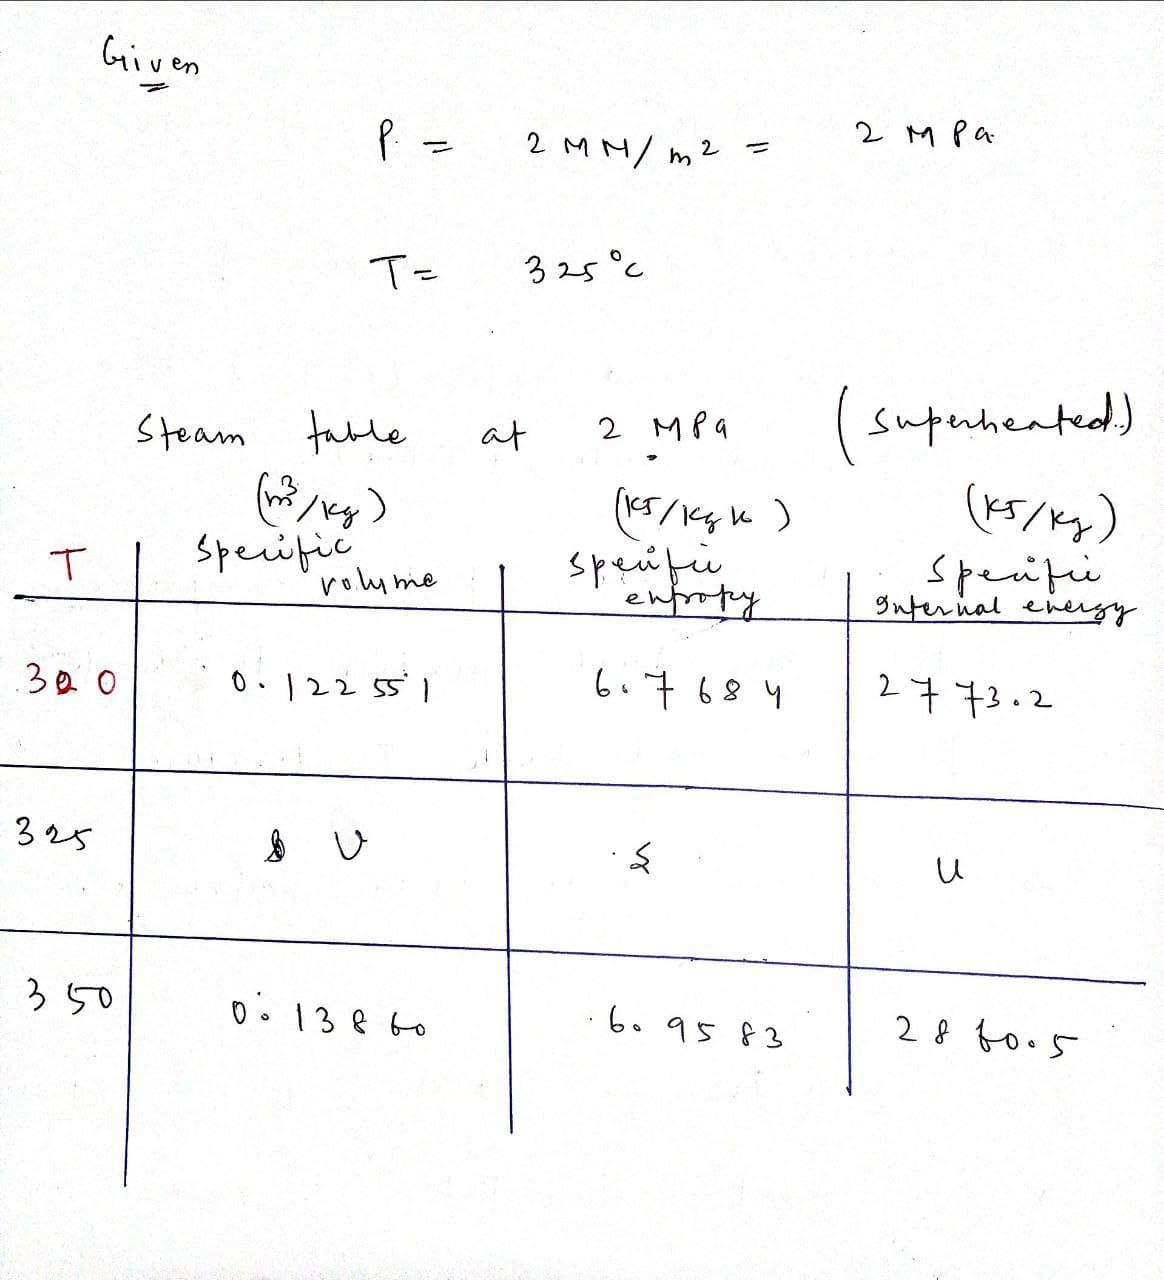 Given
P = 2 MN/m2 = 2 MPa
T = 325°C
Steam table at 2 MPa (superheated)
(m3/kg) (kJ/kg k) (kJ/kg)
T specific volume specific entropy specific internal energy
300 0.122551 6.7684 2773.2
325 v s u
350 0.13860 6.9583 2860.5